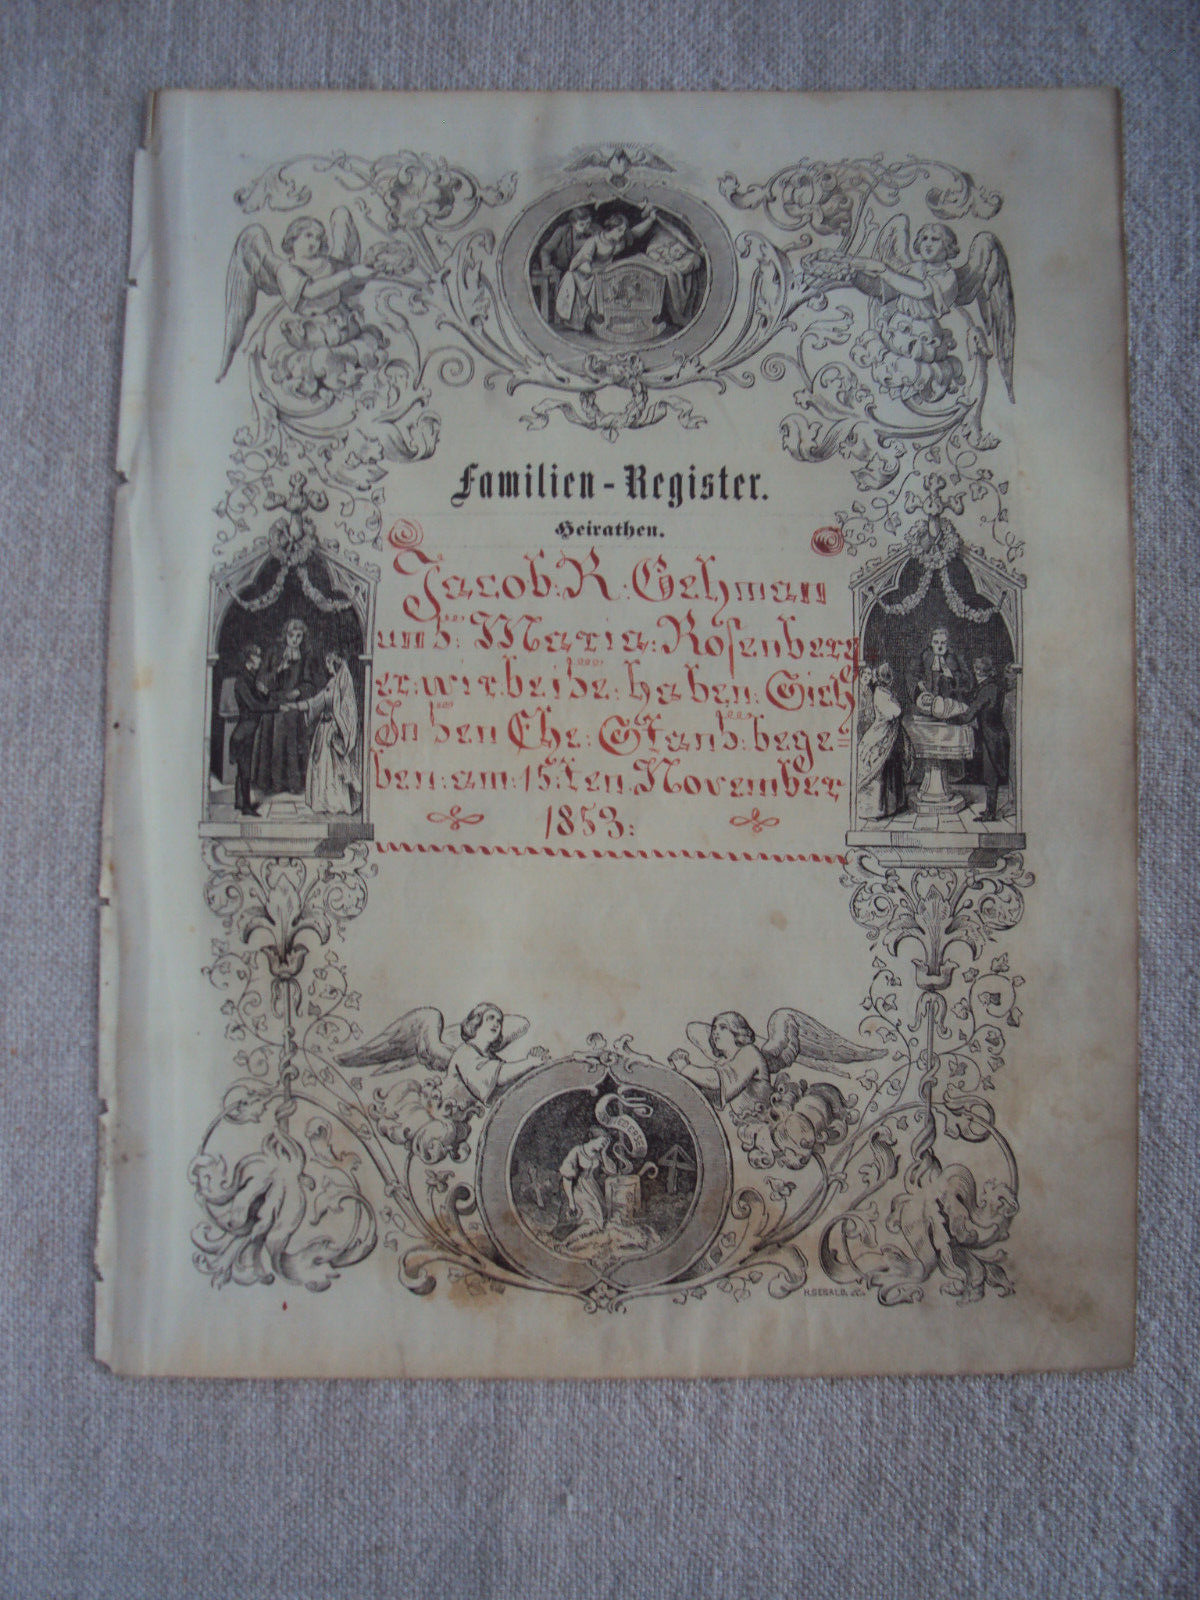 Familien-Register.
Heirathen.
Jacob: R: Gehman
und: Maria: Rosenberg
er: wir: beide: haben: Sich
In den Ehe: Stand: bege=
ben: am: 15: ten: November
1853:
H. SEBALD. Sc.